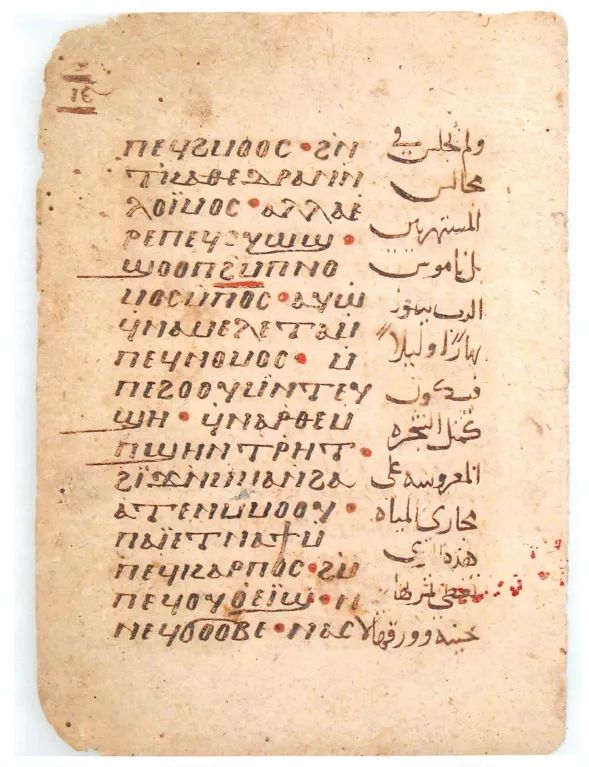 ⲡⲉϥϩⲙⲟⲟⲥ · ϩⲛ
ⲧⲕⲁⲑⲉⲇⲣⲁⲛⲛ
ⲗⲟⲓ̈ⲙⲟⲥ · ⲁⲗⲗⲁⲉ
ⲣⲉⲡⲉϥⲟⲩⲱϣ ·
ϣⲟⲟⲡϩⲙⲡⲛⲟ
ⲙⲟⲥⲙⲡⲟⲥ · ⲁⲩⲱ
ϥⲛⲁⲙⲉⲗⲉⲧⲁⲙ
ⲡⲉϥⲛⲟⲙⲟⲥ · ⲙ
ⲡⲉϩⲟⲟⲩⲙⲛⲧⲉⲩ
ϣⲏ · ϥⲛⲁⲣⲑⲉⲙ
ⲡϣⲏⲛⲧⲣⲏⲧ ·
ϩⲓ̈ϫⲛⲙⲙⲁⲛϩⲁ
ⲁⲧⲉⲛⲙⲙⲟⲟⲩ ·
ⲡⲁⲓ̈ⲉⲧⲛⲁϯⲙ
ⲡⲉϥⲕⲁⲣⲡⲟⲥ · ϩⲙ
ⲡⲉϥⲟⲩⲟⲉⲓ̈ϣ · ⲛ
ⲛⲉϥϭⲟⲟⲃⲉ · ⲛⲁⲥ
ولم يجلس في
مجالس
المستهزين
بل ناموس
الرب
نهارًا وليلاً
فيكون
كمثل الشجره
المغروسه على
مجاري المياه
هذه التي
تعطي ثمرتها
حينه وورقها لا